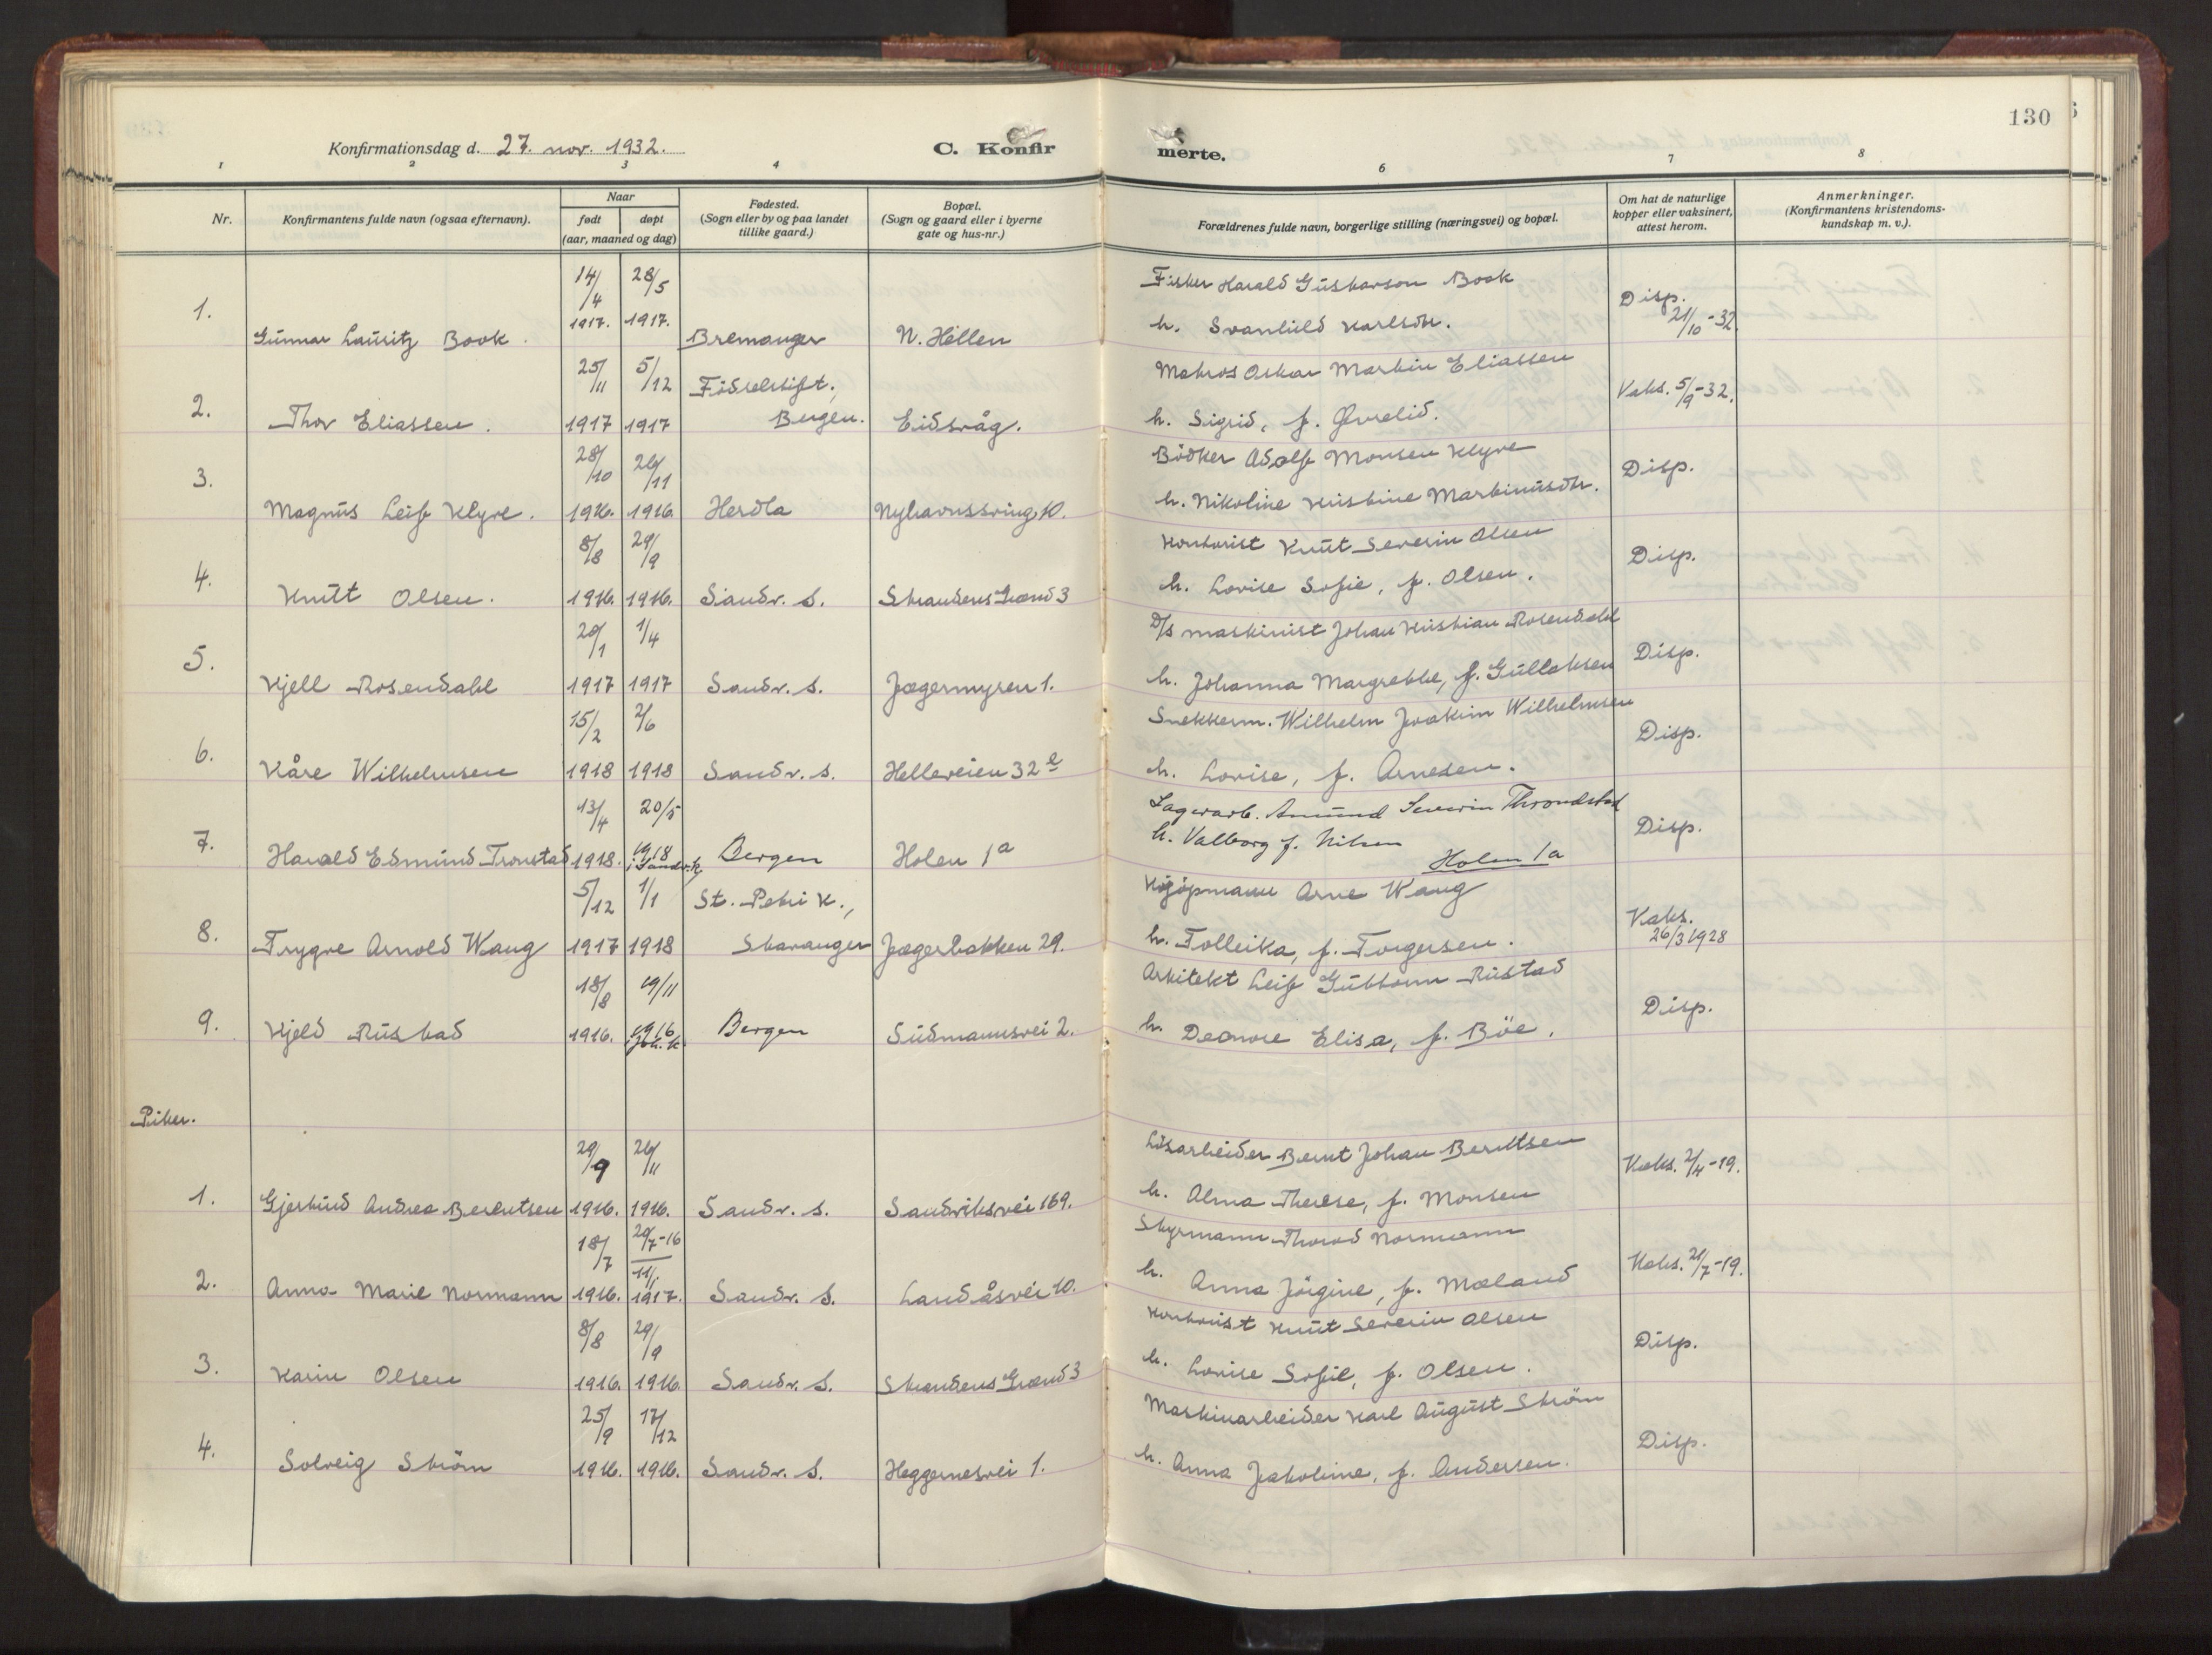 130
Konfirmationsdag d. 27. nov. 1932.
C. Konfirmerte.
1 2 3 4 6 7 8
Nr.
Konfirmantens fulde navn (ogsaa efternavn).
Naar
født døpt
(aar, maaned og dag)
Fødested.
(Sogn eller by og paa landet
tillike gaard.)
Bopæl.
(Sogn og gaard eller i byerne
gate og hus-nr.)
Forældrenes fulde navn, borgerlige stilling (næringsvei) og bopæl.
Om hat de naturlige
kopper eller vaksinert,
attest herom.
Anmerkninger.
(Konfirmantens kristendoms-
kundskap m. v.).
14/4 28/5 Fisker Harald Gustavson Book
1. Gunnar Lauritz Book. 1917. 1917. Bremanger N. Hellen h. Svanhild Karlsdtr. Disp. 21/10-32.
25/11 5/12 Födselsstift., Matros Oskar Martin Eliassen
2. Thor Eliassen. 1917 1917 Bergen. Eidsvåg. h. Sigrid, f. Øvrelid. Vaks. 5/9-32.
28/10 26/11 Bödker Adolf Monsen Klyve
3. Magnus Leif Klyve. 1916. 1916. Herdla Nyhavnssving 10. h. Nikoline Kristine Martinusdtr. Disp.
8/8 29/9 Kontorist Knut Severin Olsen
4. Knut Olsen. 1916. 1916. Sandv. S. Strandens Grend 3 h. Lovise Sofie, f. Olsen. Disp.
20/1 1/4 D/s maskinist Johan Kristian Rosendahl
5. Kjell Rosendahl 1917 1917 Sandv. S. Jægermyren 1. h. Johanna Margrethe, f. Gullaksen Disp.
15/2 2/6 Snekkerm. Wilhelm Joakim Wilhelmsen
6. Kåre Wilhelmsen 1918 1918 Sandv. S. Helleveien 32 e h. Lovise, f. Arnesen. Disp.
13/4 20/5 Lagerarb. Amund Severin Throndstad
7. Harald Edmund Tronstad 1918. 1918 i Sandv. k. Bergen Holen 1a h. Valborg f. Nilsen Holen 1a Disp.
5/12 1/1 St. Petri K., Kjöpmann Arne Waug
8. Trygve Arnold Waug 1917 1918 Stavanger Jægerbakken 29. h. Tolleika, f. Torgersen. Vaks. 26/3 1928
18/8 19/11 Arkitekt Leif Guttorm Rustad
9. Kjeld Rustad 1916. 1916 Joh. k. Bergen Sudmannsvei 2. h. Deanore Elisa, f. Böe. Disp.
Piker.
29/9 26/11 Lösarbeider Bernt Johan Berntsen
1. Gjertrud Andrea Berentsen 1916. 1916. Sandv. S. Sandviksvei 169. h. Alma Therese, f. Monsen Vaks. 2/4-19.
18/7 29/7-16 Styrmann Thorod Normann
2. Anna Marie Normann 1916. 11/1 1917. Sandv. S. Landåsvei 10. h. Anna Jörgine, f. Mæland Vaks. 21/7-19.
8/8 29/9 Kontorist Knut Severin Olsen
3. Karin Olsen 1916. 1916. Sandv. S. Strandens Grend 3 h. Lovise Sofie, f. Olsen. Disp.
25/9 17/12 Maskinarbeider Karl August Ström
4. Solveig Ström 1916. 1916. Sandv. S. Heggernesvei 1. h. Anna Jakobine, f. Andersen. Disp.